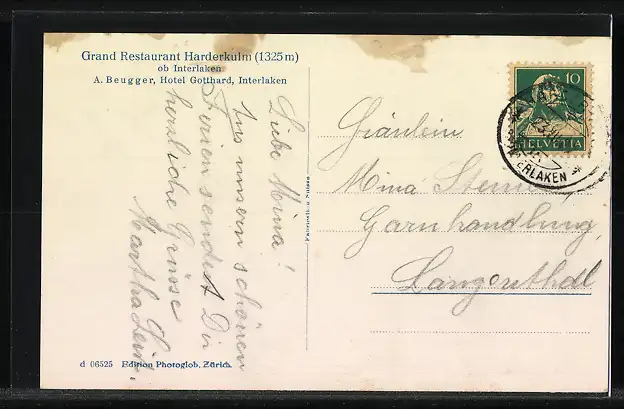 Grand Restaurant Harderkulm (1325 m)
ob Interlaken
A. Beugger, Hotel Gotthard, Interlaken
Liebe Mina!
Aus unsern schönen
Ferien sendet Dir
herzliche Grüsse
Martha
Fräulein
Mina
Garnhandlung
Langenthal
10
HELVETIA
INTERLAKEN
d 06525 Edition Photoglob, Zürich.